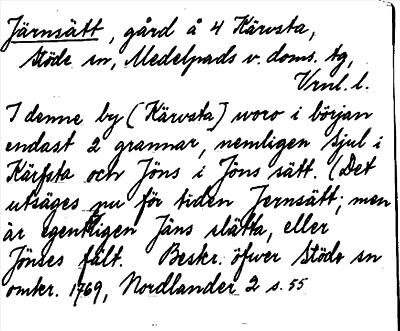 Järnsätt, gård å 4 Kärvsta,
Stöde sn, Medelpads v. doms. tg,
Vrnl. l.
I denne by (Kärvsta) woro i början
endast 2 grannar, nemligen Sjul i
Kärfsta och Jöns i Jöns sätt. (Det
utsäges nu för tiden Jernsätt; men
är egentligen Jäns slätta, eller
Jönses fält. Beskr. öfwer Stöde sn
omkr. 1769, Nordlander 2 s. 55